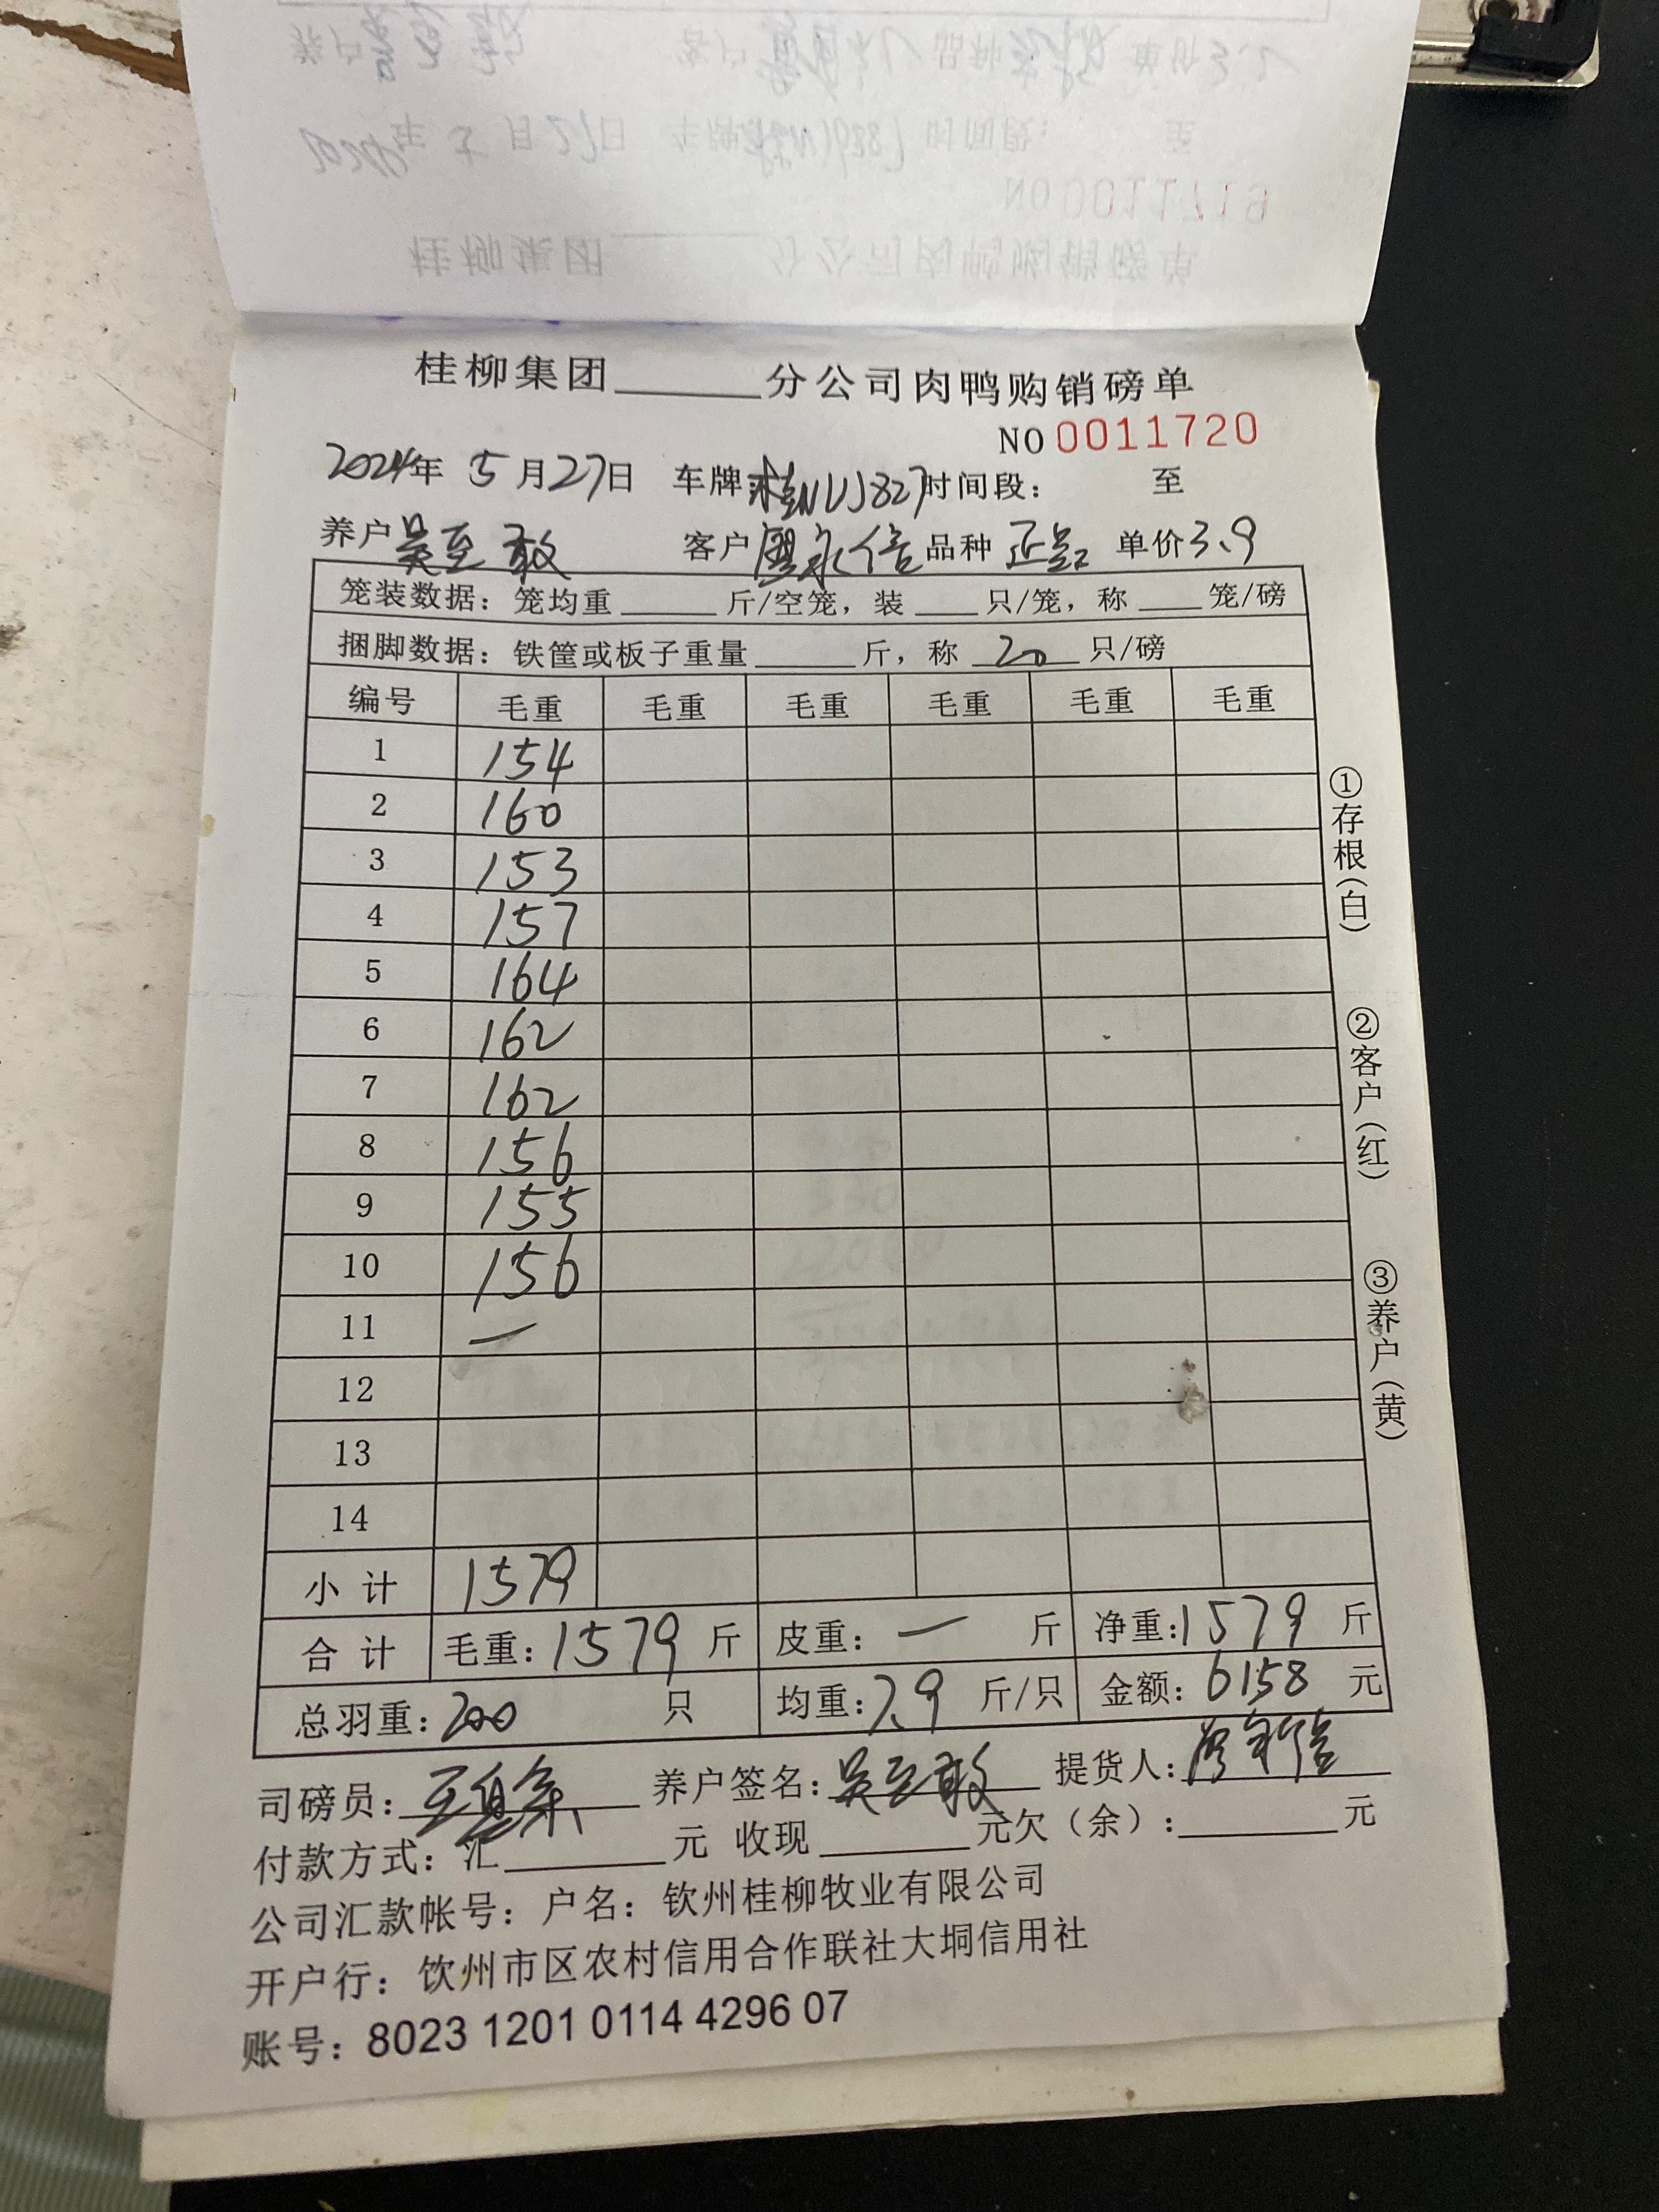 桂柳集团______分公司肉鸭购销磅单
NO 0011720
2024年 5月27日 车牌桂NUJ827时间段： 至
养户吴至敢 客户廖永信 品种 正品 单价3.9
笼装数据：笼均重______斤/空笼，装____只/笼，称____笼/磅
捆脚数据：铁筐或板子重量______斤，称 20 只/磅
编号 毛重 毛重 毛重 毛重 毛重 毛重
1 154
2 160
3 153
4 157
5 164
6 162
7 162
8 156
9 155
10 156
11 —
12
13
14
小计 1579
合计 毛重：1579 斤 皮重：— 斤 净重：1579 斤
总羽重：200 只 均重：7.9 斤/只 金额：6158 元
司磅员： 养户签名：吴至敢 提货人：廖永信
付款方式：汇______元 收现______元欠（余）：______元
公司汇款帐号：户名：钦州桂柳牧业有限公司
开户行：钦州市区农村信用合作联社大垌信用社
账号：8023 1201 0114 4296 07
①存根（白） ②客户（红） ③养户（黄）